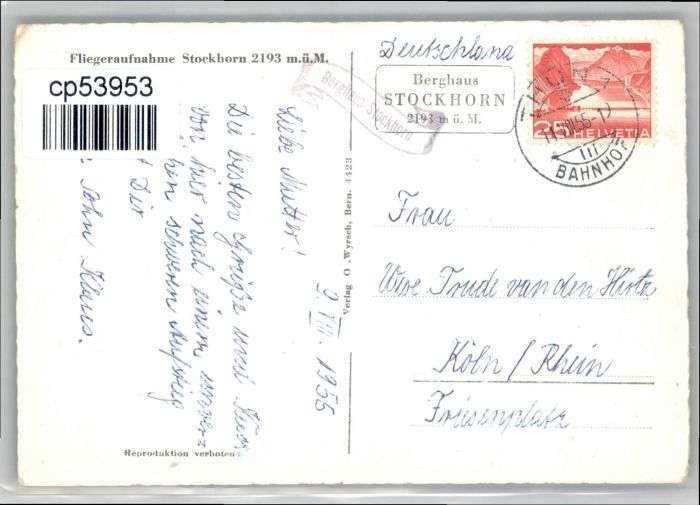 Fliegeraufnahme Stockhorn 2193 m.ü.M.
cp53953
Liebe Mutter!
Die besten Grüße und
von hier nach einem
hen schweren Aufstieg
Dir
Sohn Klaus.
9. VIII. 1955
Reproduktion verboten
Verlag O. Wyrsch, Bern. 4423
Deutschland
Berghaus Stockhorn
Berghaus
STOCKHORN
2193 m ü. M.
25 HELVETIA
BAHNHOF
Frau
Wwe Trude van den Hirtz
Köln / Rhein
Friesenplatz